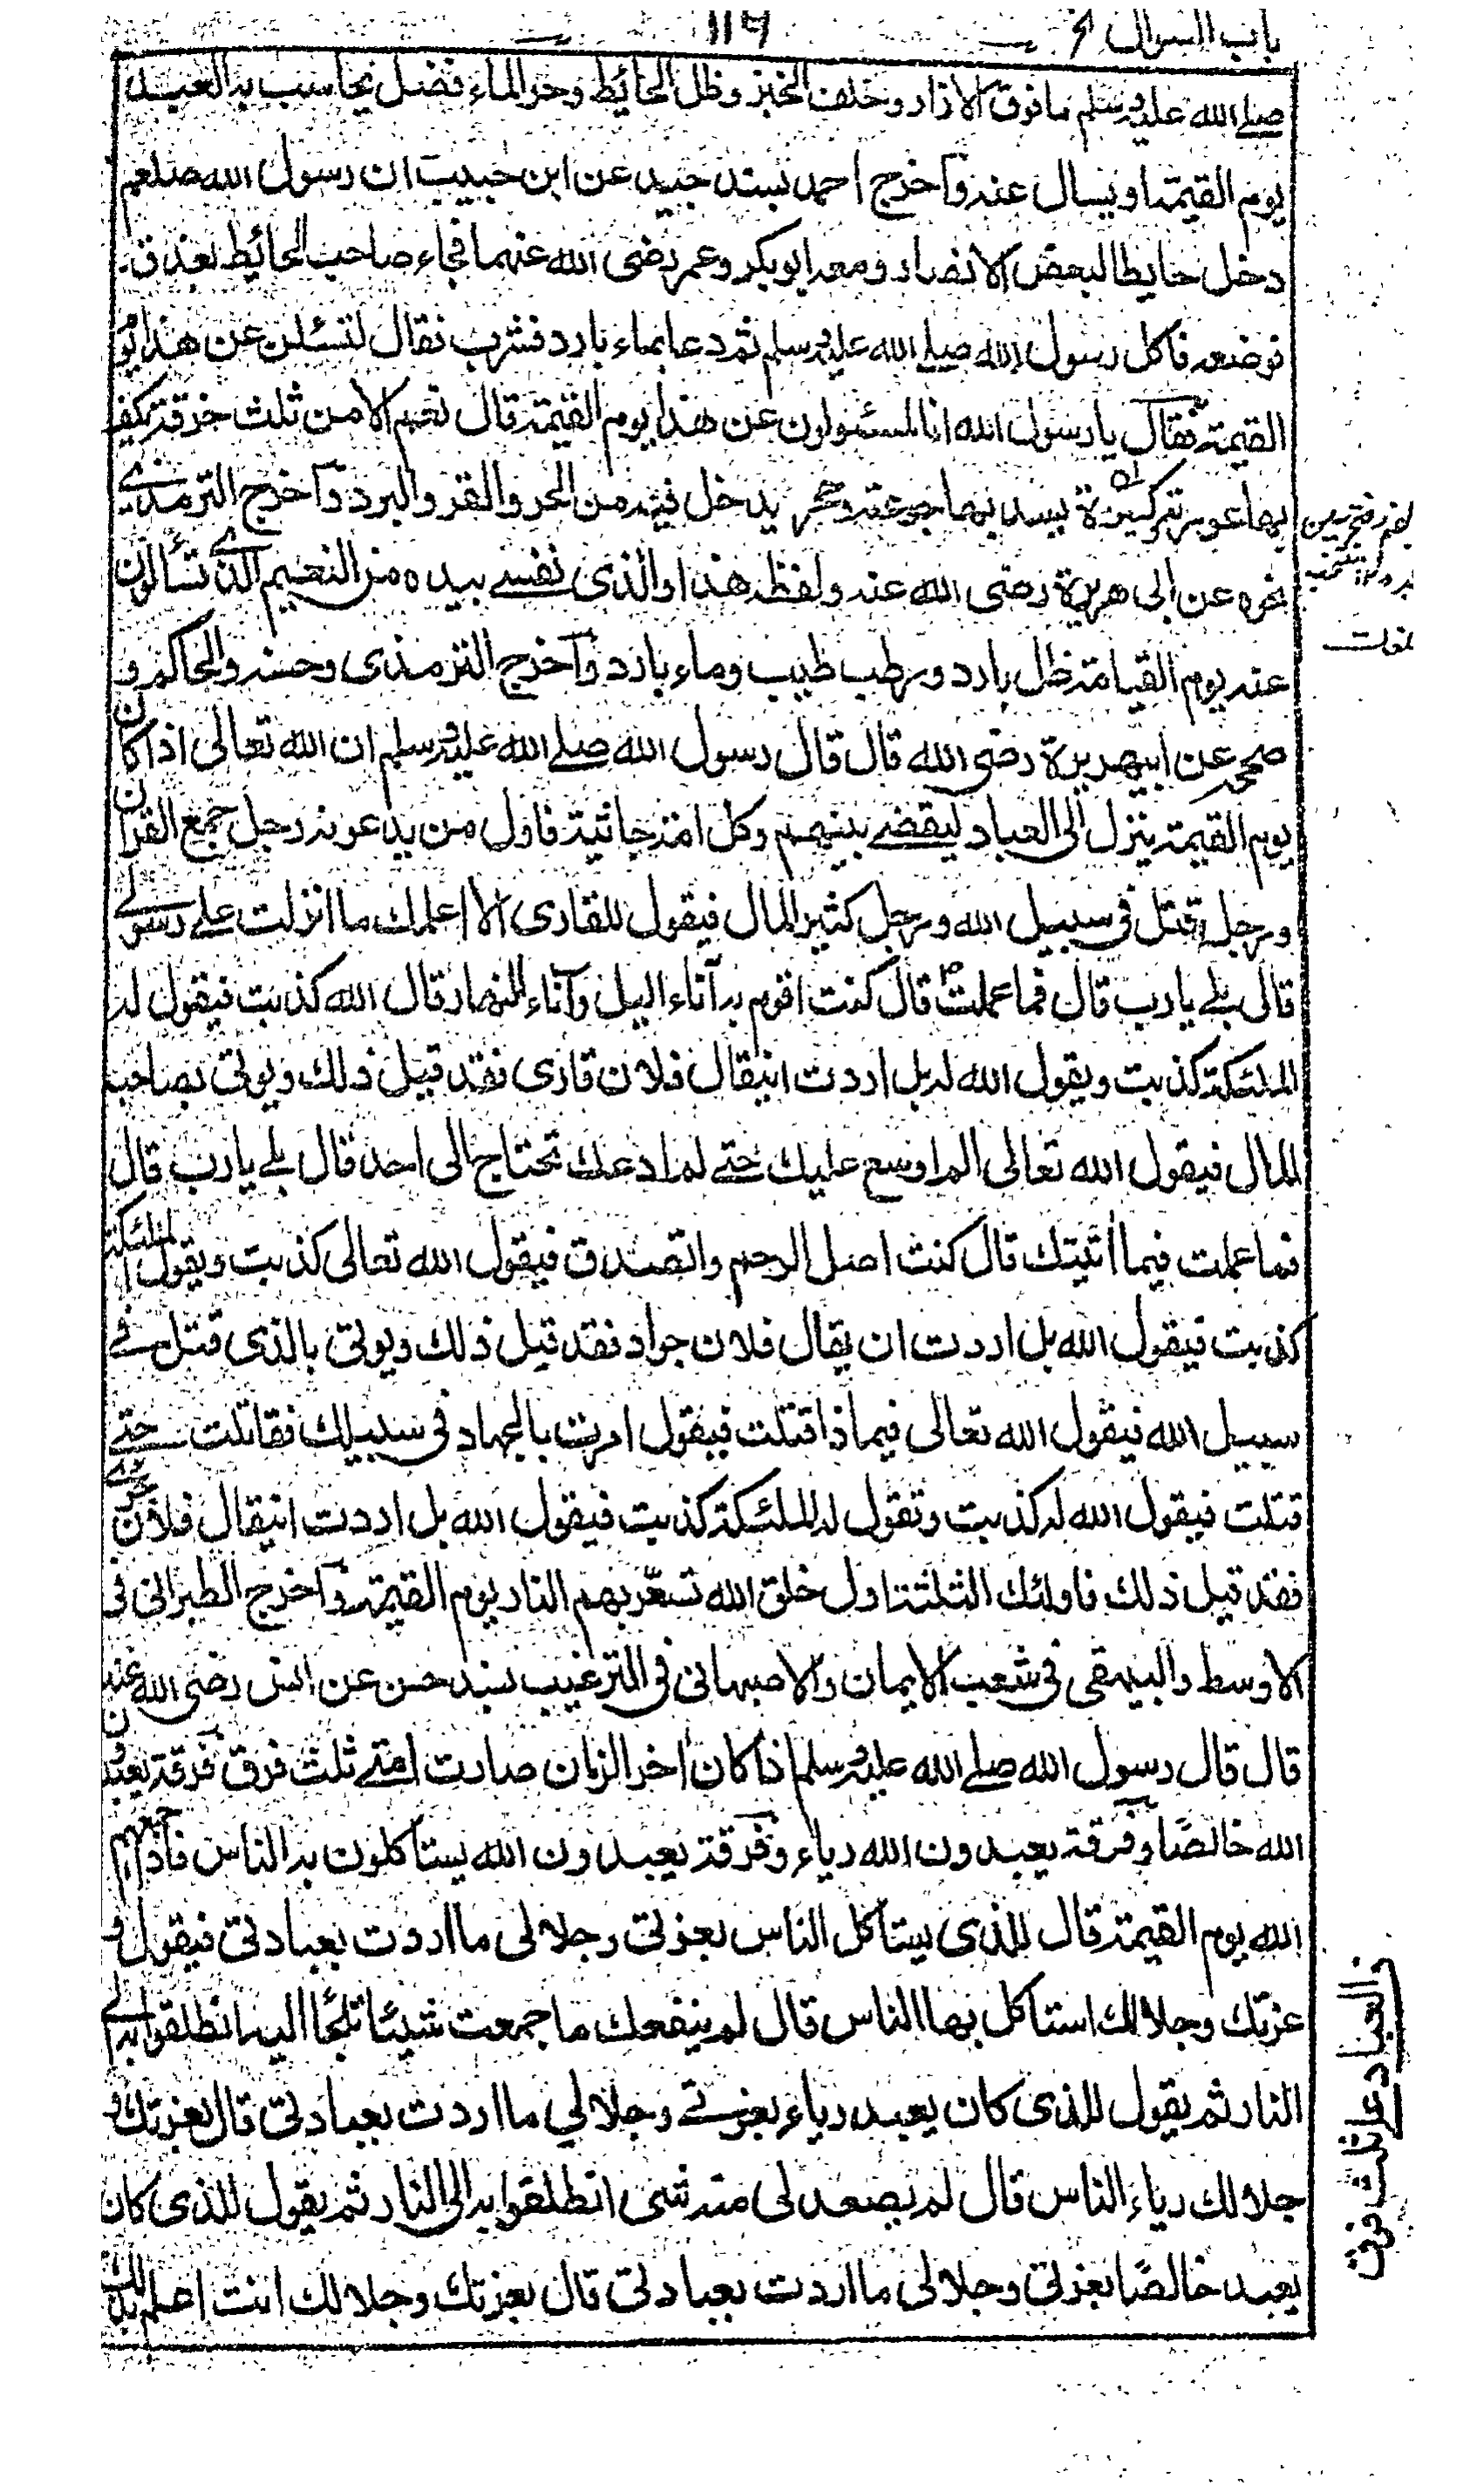 باب السوال ١١٦
صلے الله عليه وسلم ما فوق الازار وخلف الخبز وظل الحائيط وحر الماء فضل يحاسب به العبد
يوم القيمة او يسال عنه وآخرج احمد بسند جيد عن ابن حبيب ان رسول الله صلعم
دخل حايطا لبعض الانصار ومعه ابو بكر وعمر رضى الله عنهما فجاء صاحب الحائيط بعذق
فوضعه فاكل رسول الله صلے الله عليه وسلم ثم دعا بماء بارد فشرب فقال لتسئلن عن هذا يوم
القيمة فقال يا رسول الله انا لمسئولون عن هذا يوم القيمة قال نعم الا من ثلث خرقة يكف
بها عورته وكسرة يسد بها جوعته وحجر يدخل فيه من الحر والقر والبرد وآخرج الترمذي
نحوه عن ابى هريرة رضى الله عنه ولفظه هذا والذى نفسے بيده من النعيم الذي تسألون
عنه يوم القيامة ظل بارد ورطب طيب وماء بارد وآخرج الترمذى وحسنه والحاكم و
صححه عن ابيهريرة رضى الله قال قال رسول الله صلے الله عليه وسلم ان الله تعالى اذا كان
يوم القيمة ينزل الى العباد ليقضے بينهم وكل امة جاثية فاول من يدعو به رجل جمع القران
ورجل قتل فى سبيل الله ورجل كثير المال فيقول للقارى الا اعلمك ما انزلت علے رسولے
قالى بلے يا رب قال فما عملت قال كنت اقوم به آناء اليل وآناء النهار قال الله كذبت فيقول له
الملئكة كذبت ويقول الله له بل اردت انيقال فلان قارى فقد قيل ذلك ويوتى بصاحب
المال فيقول الله تعالى الم اوسع عليك حتے لم ادعك تحتاج الى احد قال بلے يا رب قال
فما عملت فيما أتيتك قال كنت اصل الرحم واتصدق فيقول الله تعالى كذبت ويقول الملئكة
كذبت فيقول الله بل اردت ان يقال فلان جواد فقد قيل ذلك ويوتى بالذى قتل فے
سبيل الله فيقول الله تعالى فيما ذا قتلت فيقول امرت بالجهاد فى سبيلك فقاتلت حتے
قتلت فيقول الله له كذبت وتقول له الملئكة كذبت فيقول الله بل اردت انيقال فلان جرے
فقد قيل ذلك فاولئك الثلثة اول خلق الله تسعّر بهم النار يوم القيمة وآخرج الطبرانى فى
الاوسط والبيهقى فى شعب الايمان والاصبهانى فى الترغيب بسند حسن عن انس رضى الله عنه
قال قال رسول الله صلے الله عليه وسلم اذا كان اخر الزمان صارت امتے ثلث فرق فرقة يعبدون
الله خالصًا وفرقة يعبدون الله رياء وفرقة يعبدون الله يستاكلون به الناس فاذا جمعهم
الله يوم القيمة قال للذى يستاكل الناس بعزتى وجلالى ما اردت بعبادتى فيقول و
عزتك وجلالك استاكل بها الناس قال لم ينفعك ما جمعت شيئا تلجا اليه انطلقوا به الے
النار ثم يقول للذى كان يعبد رياء بعزتے وجلالي ما اردت بعبادتى قال بعزتك و
جلالك رياء الناس قال لم يصعد لى منه شى انطلقوا به الى النار ثم يقول للذى كان
يعبد خالصًا بعزتى وجلالى ما اردت بعبادتى قال بعزتك وجلالك انت اعلم بذلك
العباد على ثلث فرق